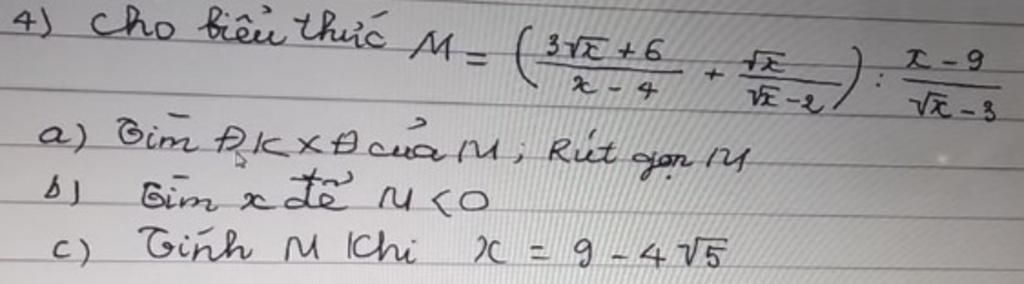 4) Cho biểu thức M = (\frac{3√x + 6}{x - 4} + \frac{√x}{√x - 2}) : \frac{x - 9}{√x - 3}
a) Tìm ĐKXĐ của M; Rút gọn M
b) Tìm x để M < 0
c) Tính M khi x = 9 - 4√5